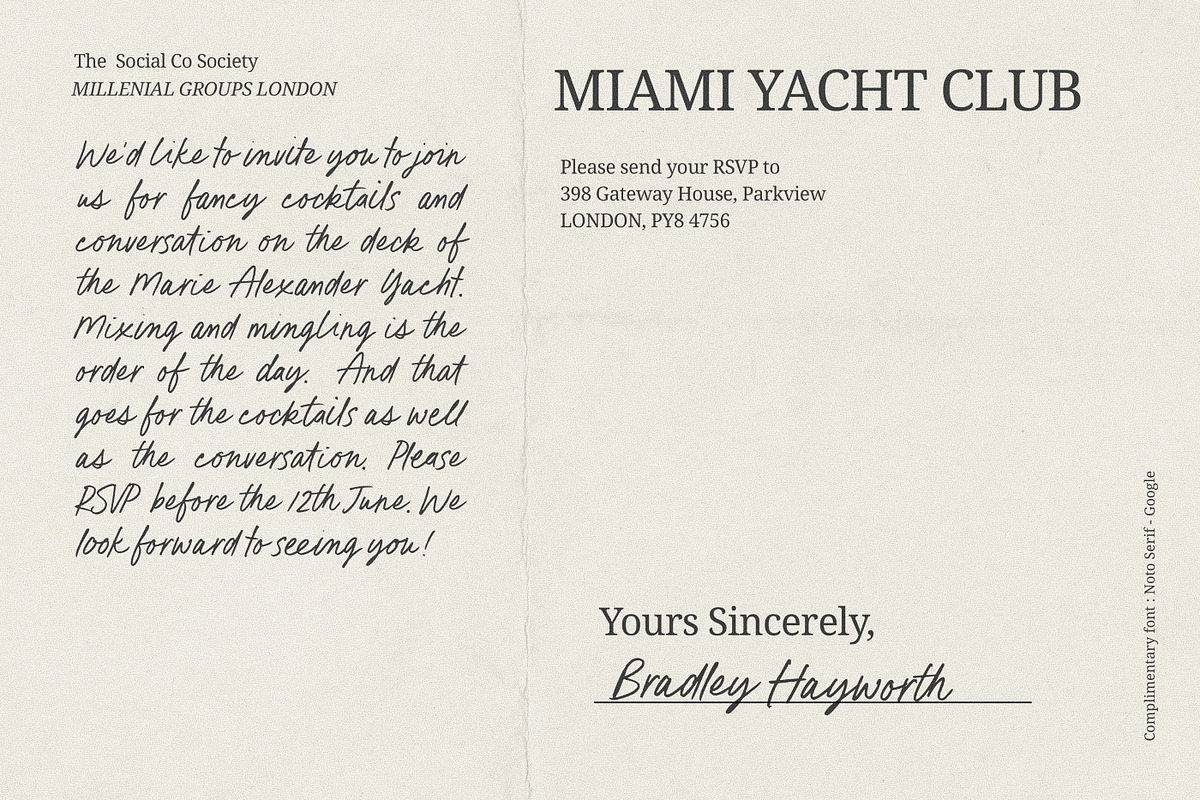 The Social Co Society
MILLENIAL GROUPS LONDON
We'd like to invite you to join
us for fancy cocktails and
conversation on the deck of
the Marie Alexander Yacht.
Mixing and mingling is the
order of the day. And that
goes for the cocktails as well
as the conversation. Please
RSVP before the 12th June. We
look forward to seeing you!
MIAMI YACHT CLUB
Please send your RSVP to
398 Gateway House, Parkview
LONDON, PY8 4756
Yours Sincerely,
Bradley Hayworth
Complimentary font : Noto Serif - Google